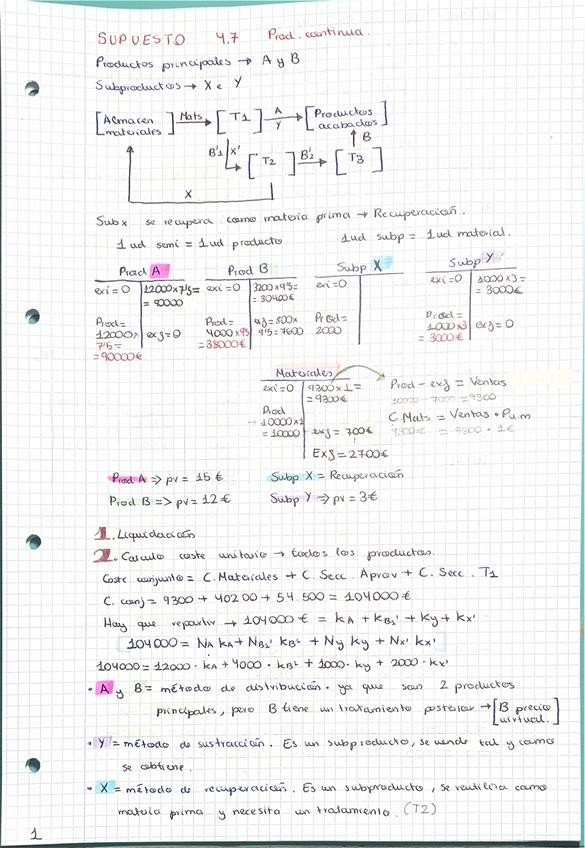 SUPUESTO 4.7 Prod. continua.
Productos principales → A y B
Subproductos → X e Y
[Almacen materiales] Mats → [T1] A Y → [Productos acabados]
B'1 X' → [T2] B'2 → [T3] ↑ B
X
Sub x se recupera como materia prima → Recuperación.
1 ud semi = 1 ud producto 1 ud subp = 1 ud material.
Prod A
exi = 0 12000 x 7'5 = = 90000
Prod = 12000 x 7'5 = = 90000€ exf = 0
Prod B
exi = 0 3200 x 9'5 = = 30400€
Prod = 4000 x 9'5 = 38000€ exf = 800 x 9'5 = 7600
Subp X
exi = 0
Prod = 2000
Subp Y
exi = 0 1000 x 3 = = 3000€
Prod = 1000 x 3 = 3000€ exf = 0
Materiales
exi = 0 9300 x 1 = = 9300€
Prod → 10000 x 1 = 10000 exf = 700€
Exf = 2700€
Prod - exf = Ventas
10000 - 700 = 9300
C. Mats = Ventas · Pu.m
9300€ = 9300 · 1€
Prod A => pv = 15 € Subp X = Recuperación
Prod B => pv = 12 € Subp Y => pv = 3€
1. Liquidación
2. Calculo coste unitario → todos los productos.
Coste conjunto = C. Materiales + C. Secc. Aprov + C. Secc. T1
C. conj = 9300 + 40200 + 54.500 = 104000 €
Hay que repartir → 104000 € = kA + kB1' + ky + kx'
104000 = NA kA + NB1' kB1' + Ny ky + Nx' kx'
104000 = 12000 · kA + 4000 · kB1' + 1000 · ky + 2000 · kx'
• A y B = método de distribución. ya que son 2 productos
principales, pero B tiene un tratamiento posterior → [B precio virtual.]
• Y = método de sustracción. Es un subproducto, se vende tal y como
se obtiene.
• X = método de recuperación. Es un subproducto, se reutiliza como
materia prima y necesita un tratamiento. (T2)
1